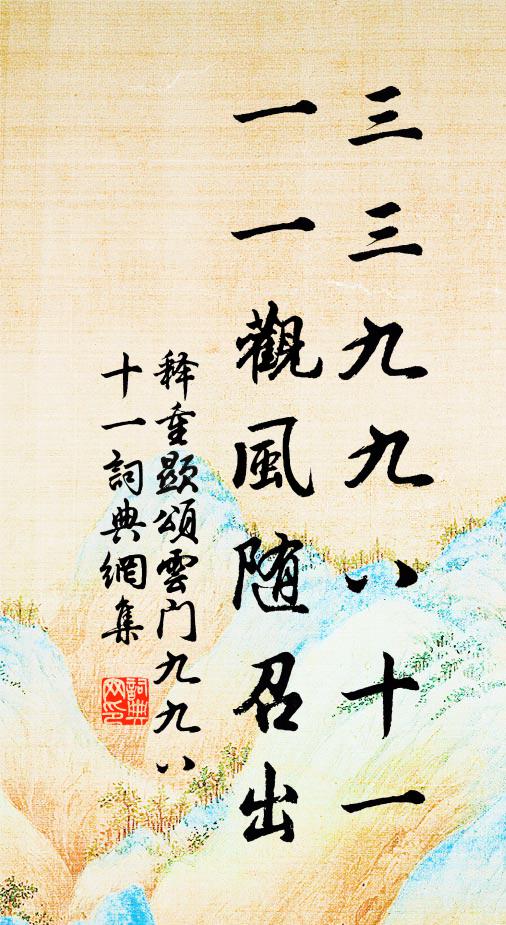 三三九九八十一
一一觀風随召出
释重顯頌雲门九九八
十一詞典網集
詞典網印